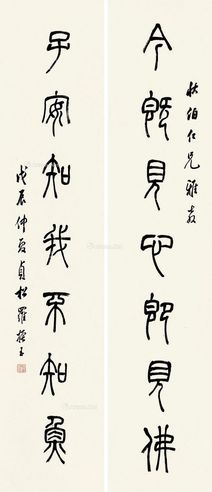 伯仁兄雅教
今既見心即見佛
子安知我不知魚
戊辰仲夏貞松羅振玉